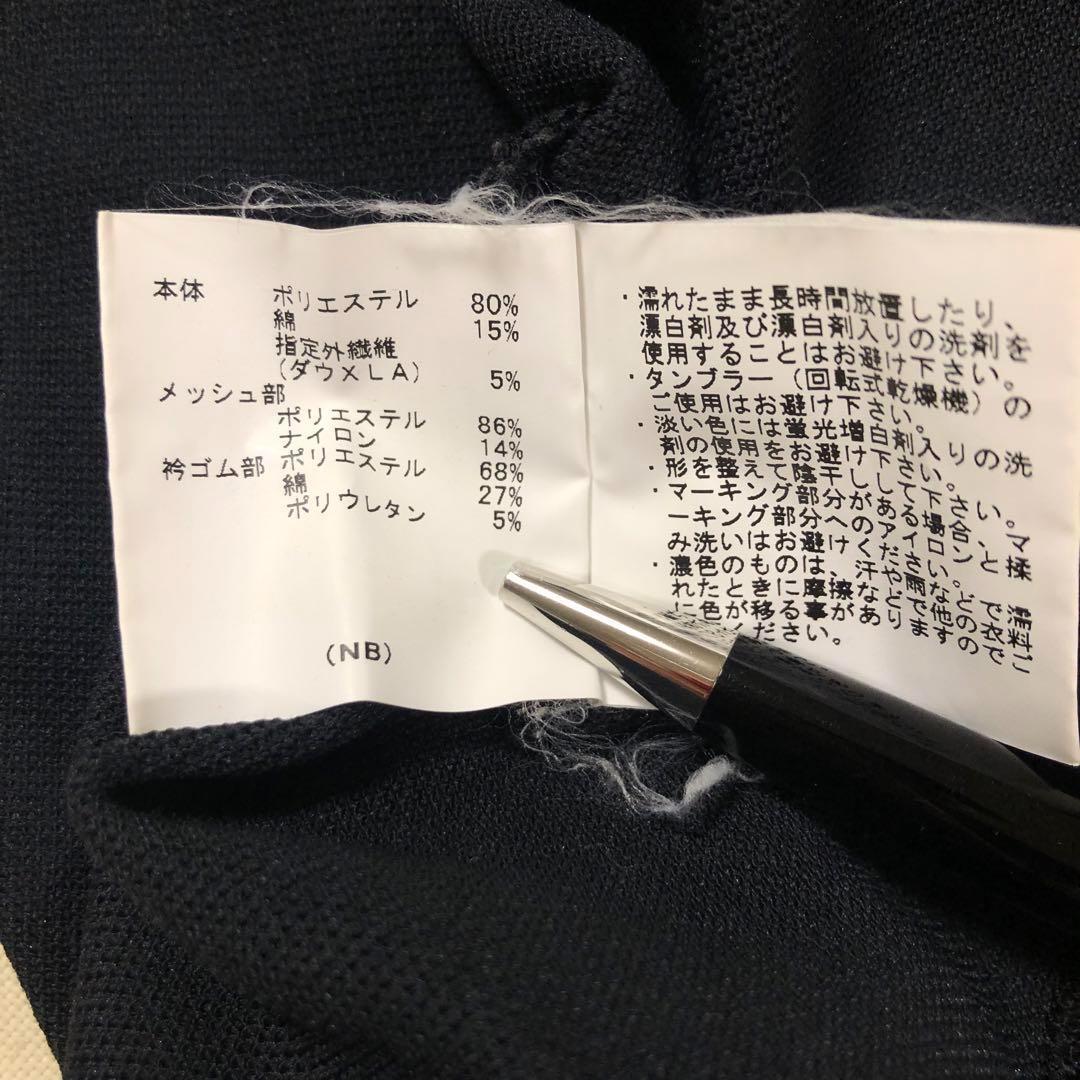 本体 ポリエステル 80%
綿 15%
指定外繊維
(ダウXLA) 5%
メッシュ部
ポリエステル 86%
ナイロン 14%
衿ゴム部 ポリエステル 68%
綿 27%
ポリウレタン 5%
(NB)
・濡れたまま長時間放置したり、
漂白剤及び漂白剤入りの洗剤を
使用することはお避け下さい。
・タンブラー(回転式乾燥機)の
ご使用はお避け下さい。
・淡い色には蛍光増白剤入りの洗
剤の使用をお避け下さい。
・形を整えて陰干しして下さい。
・マーキング部分がある場合、マ
ーキング部分へのアイロンと揉
み洗いはお避けください。
・濃色のものは、汗や雨などで濡
れたときに摩擦などで他の衣料
に色が移る事がありますのでご
ください。